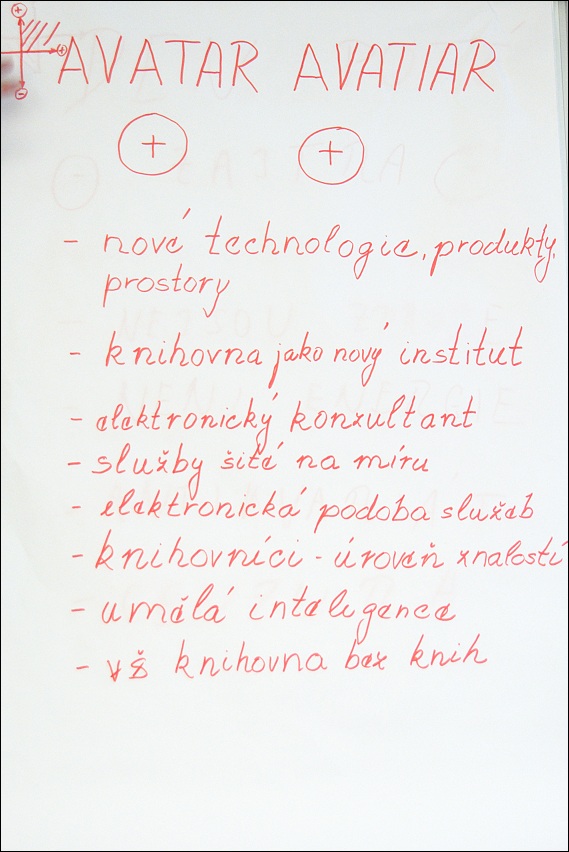 AVATAR AVATIAR
+ +
- nové technologie, produkty,
prostory
- knihovna jako nový institut
- elektronický konzultant
- služby šité na míru
- elektronická podoba služeb
- knihovníci - úroveň znalostí
- umělá inteligence
- vš knihovna bez knih